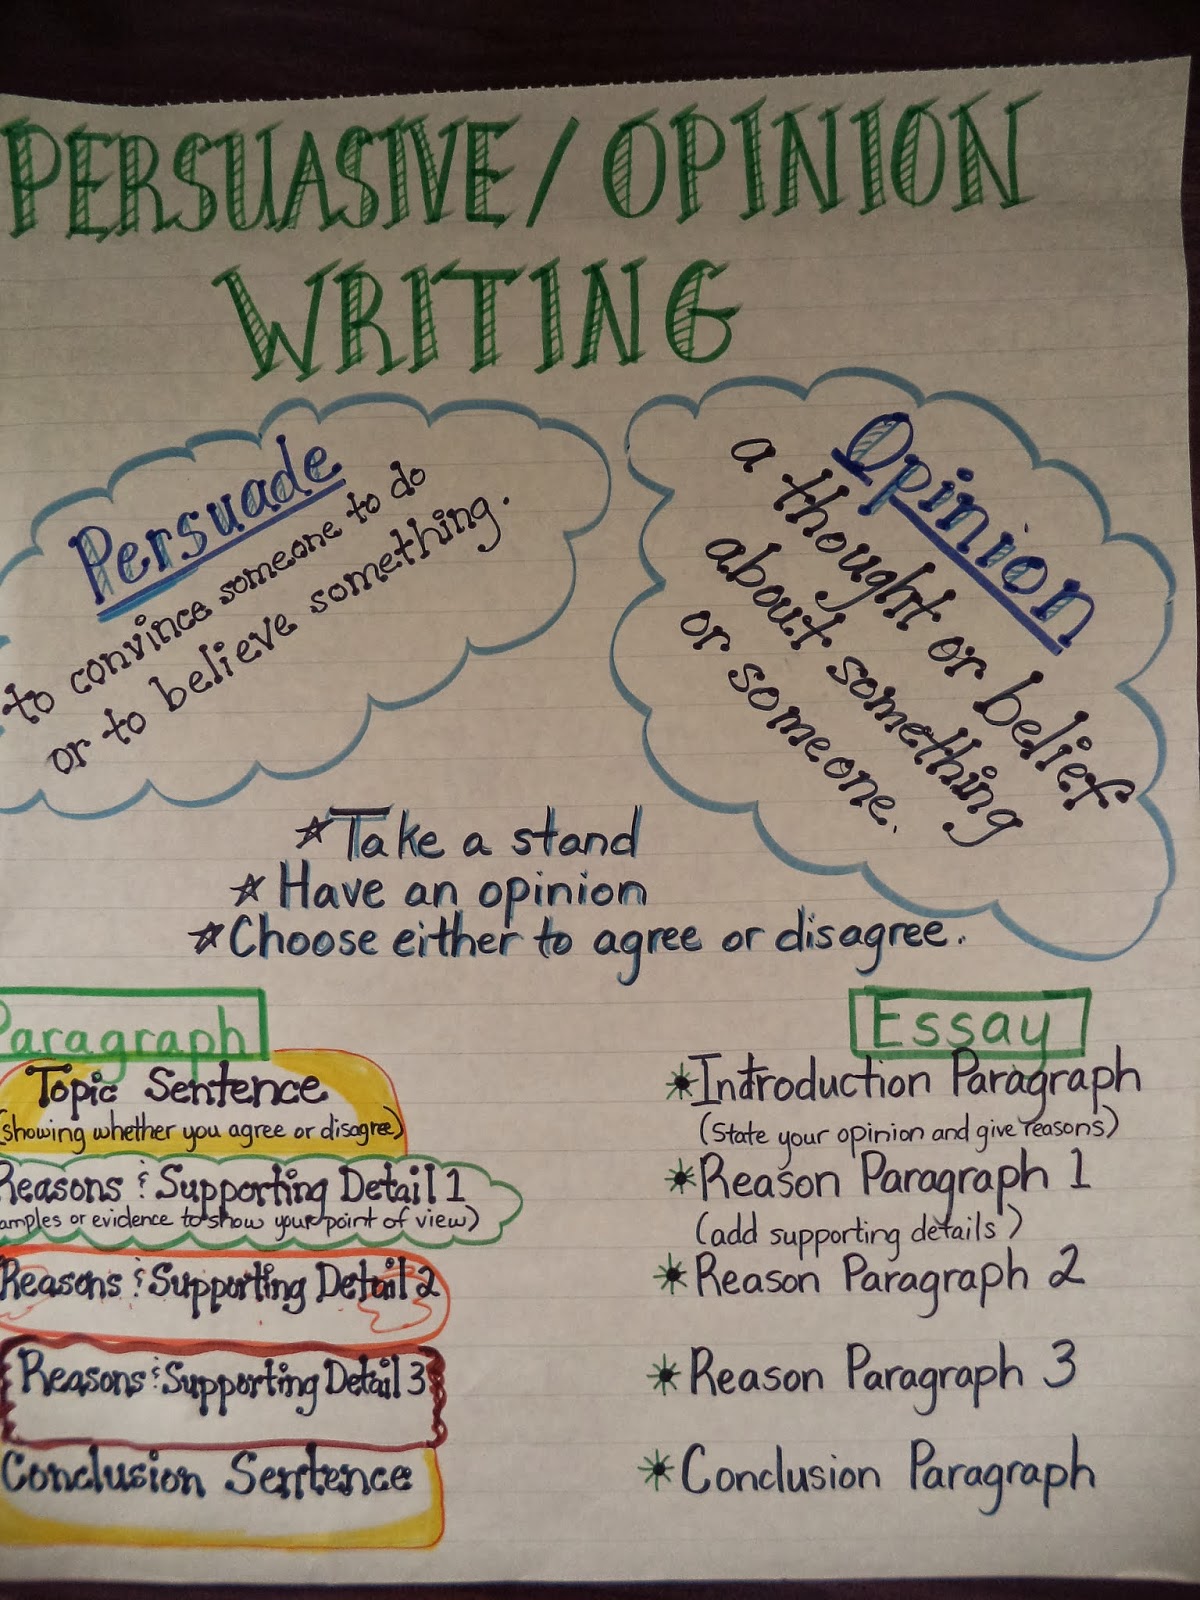 PERSUASIVE/OPINION
WRITING
Persuade
to convince someone to do
or to believe something.
Opinion
a thought or belief
about something
or someone.
☆Take a stand
☆Have an opinion
☆Choose either to agree or disagree.
Paragraph
Topic Sentence
(showing whether you agree or disagree)
Reasons & Supporting Detail 1
amples or evidence to show your point of view)
Reasons & Supporting Detail 2
Reasons & Supporting Detail 3
Conclusion Sentence
Essay
*Introduction Paragraph
(state your opinion and give reasons)
*Reason Paragraph 1
(add supporting details)
*Reason Paragraph 2
*Reason Paragraph 3
*Conclusion Paragraph